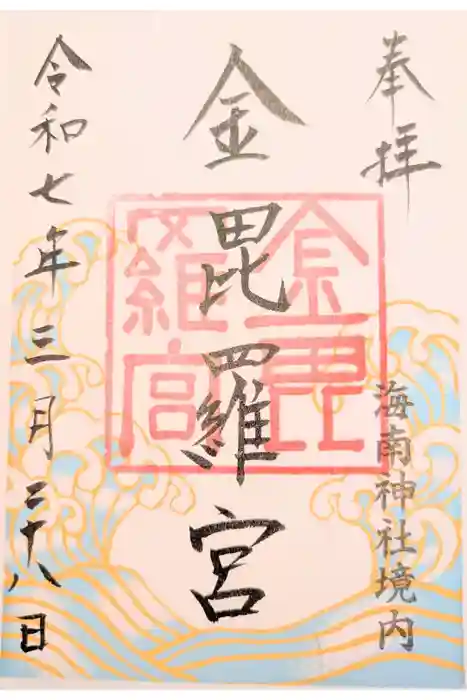 奉拝
海南神社境内
金毘羅宮
金毘
羅宮
令和七年三月二十八日